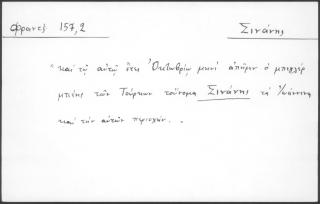 Φραντζ 157,2
Σινάνης
"καὶ τῷ αὐτῷ ἔτει Ὀκτωβρίῳ μηνὶ ἀπῆρεν ὁ μπεγλέρ
μπεης τῶν Τούρκων τοὔνομα Σινάνης τὰ Ἰωάννινα
καὶ τὴν αὐτῶν περιοχήν.